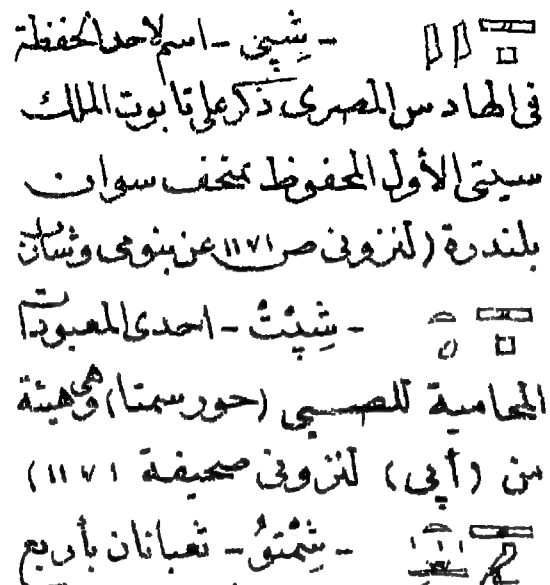 - شِپِى - اسم لأحد الحفظة
فى الهادس المصرى ذكر على تابوت الملك
سيتى الأول المحفوظ بمتحف سوان
بلندرة (لنزونى ص ١١٧١ عن بنومى وشارل
- شِپِتْ - احدى المعبودات
المحامية للصبى (حورسمتا) وهى هيئة
من (أپى) لنزونى صحيفة ١١٧١)
- شِمْتوُ - ثعبانان بأربع